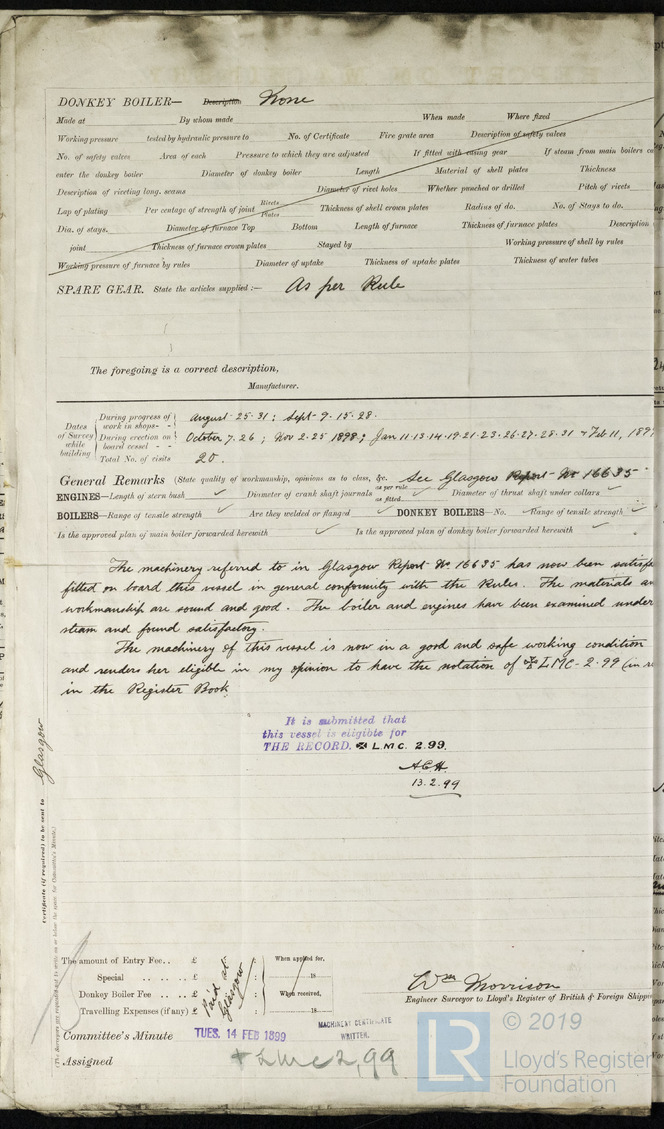 DONKEY BOILER— Description None
Made at By whom made When made Where fixed
Working pressure tested by hydraulic pressure to No. of Certificate Fire grate area Description of safety valves
No. of safety valves Area of each Pressure to which they are adjusted If fitted with easing gear If steam from main boilers ca
enter the donkey boiler Diameter of donkey boiler Length Material of shell plates Thickness
Description of riveting long. seams Diameter of rivet holes Whether punched or drilled Pitch of rivets
Lap of plating Per centage of strength of joint Rivets Plates Thickness of shell crown plates Radius of do. No. of Stays to do.
Dia. of stays. Diameter of furnace Top Bottom Length of furnace Thickness of furnace plates Description
joint Thickness of furnace crown plates Stayed by Working pressure of shell by rules
Working pressure of furnace by rules Diameter of uptake Thickness of uptake plates Thickness of water tubes
SPARE GEAR. State the articles supplied :— As per Rule
The foregoing is a correct description,
Manufacturer.
Dates of Survey while building
During progress of work in shops - - August 25. 31 ; Sept 9. 15. 28.
During erection on board vessel - - October 7. 26 ; Nov 2. 25 1898 ; Jan 11. 13. 14. 19. 21. 23. 26. 27. 28. 31 + Feb 11, 189
Total No. of visits 20.
General Remarks (State quality of workmanship, opinions as to class, &c. See Glasgow Report No 16635
ENGINES—Length of stern bush ✓ Diameter of crank shaft journals as per rule as fitted ✓ Diameter of thrust shaft under collars ✓
BOILERS—Range of tensile strength ✓ Are they welded or flanged ✓ DONKEY BOILERS—No. ✓ Range of tensile strength ✓
Is the approved plan of main boiler forwarded herewith ✓ Is the approved plan of donkey boiler forwarded herewith ✓
The machinery referred to in Glasgow Report No 16635 has now been satisfa
fitted on board this vessel in general conformity with the Rules. The materials an
workmanship are sound and good. The boiler and engines have been examined under
steam and found satisfactory.
The machinery of this vessel is now in a good and safe working condition
and renders her eligible in my opinion to have the notation of ✠ LMC - 2.99 (in
in the Register Book.
It is submitted that
this vessel is eligible for
THE RECORD. ✠ L.M.C. 2.99.
A.C.H.
13.2.99
Glasgow
Certificate (if required) to be sent to
The amount of Entry Fee.. £ : : When applied for,
Special .. .. .. .. £ : : 18
Donkey Boiler Fee .. .. .. £ : : When received,
Travelling Expenses (if any) £ : : 18
Paid at Glasgow
Wm Morrison
Engineer Surveyor to Lloyd's Register of British & Foreign Shippin
Committee's Minute TUES. 14 FEB 1899
MACHINERY CERTIFICATE
WRITTEN.
Assigned + LMC 2,99
© 2019
LR
Lloyd's Register
Foundation